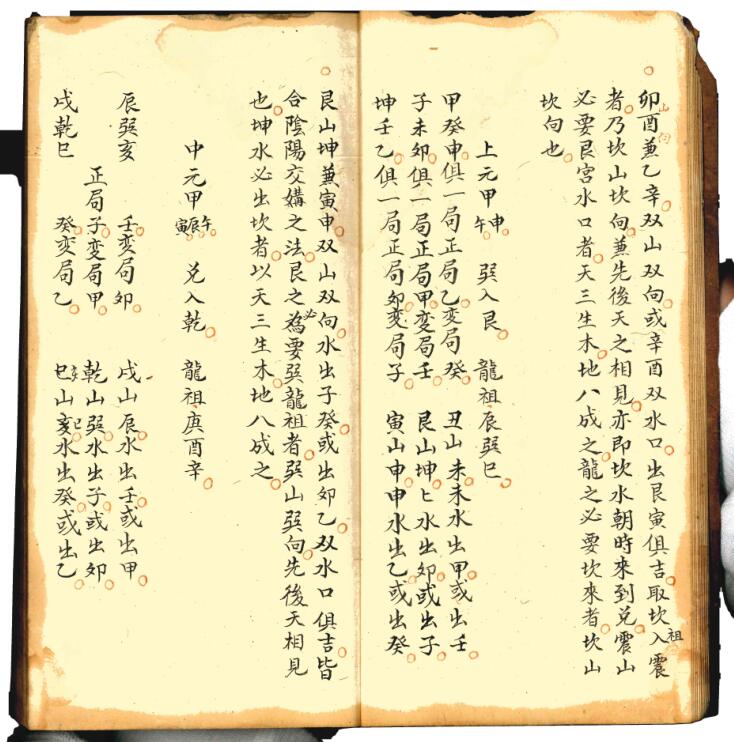 卯山酉向兼乙辛双山双向或辛酉双水口出艮寅俱吉取坎入祖震
者乃坎山坎向兼先後天之相見亦即坎水朝時來到兌震山
必要艮宮水口者天三生木地八成之龍之必要坎來者坎山
坎向也
上元甲申午 巽入艮 龍祖辰巽巳
甲癸申俱一局正局乙变局癸 丑山未未水出甲或出壬
子未卯俱一局正局甲变局壬 艮山坤匕水出卯或出子
坤壬乙俱一局正局卯变局子 寅山申申水出乙或出癸
艮山坤兼寅申双山双向水出子癸或出卯乙双水口俱吉皆
合陰陽交媾之法艮之必為要巽龍祖者巽山巽向先後天相見
也坤水必出坎者以天三生木地八成之
中元甲午辰寅 兌入乾 龍祖庚酉辛
辰巽亥 壬变局卯 戌山辰水出壬或出甲
正局子变局甲 乾山巽水出子或出卯
戌乾巳 癸变局乙 山水出癸或出乙